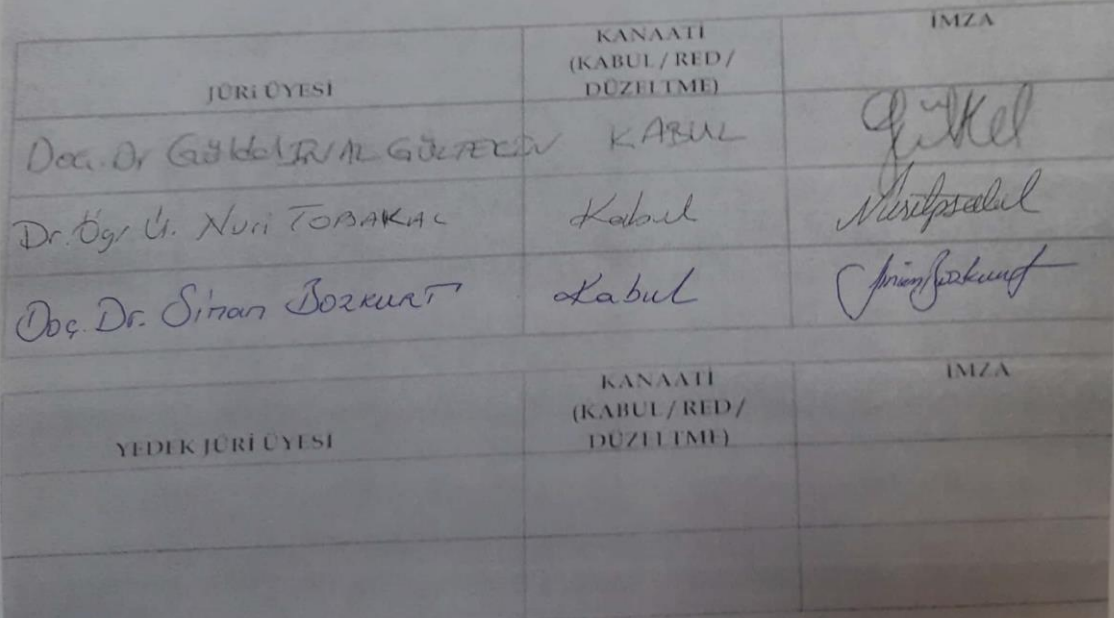 JÜRİ ÜYESİ
KANAATİ
(KABUL / RED /
DÜZELTME)
İMZA
Doç. Dr GÜLTEKİN KABUL
Dr. Öğr Ü. Nuri TOBAKAL Kabul
Doç. Dr. Sinan BOZKURT Kabul Sinan Bozkurt
YEDEK JÜRİ ÜYESİ
KANAATİ
(KABUL / RED /
DÜZELTME)
İMZA